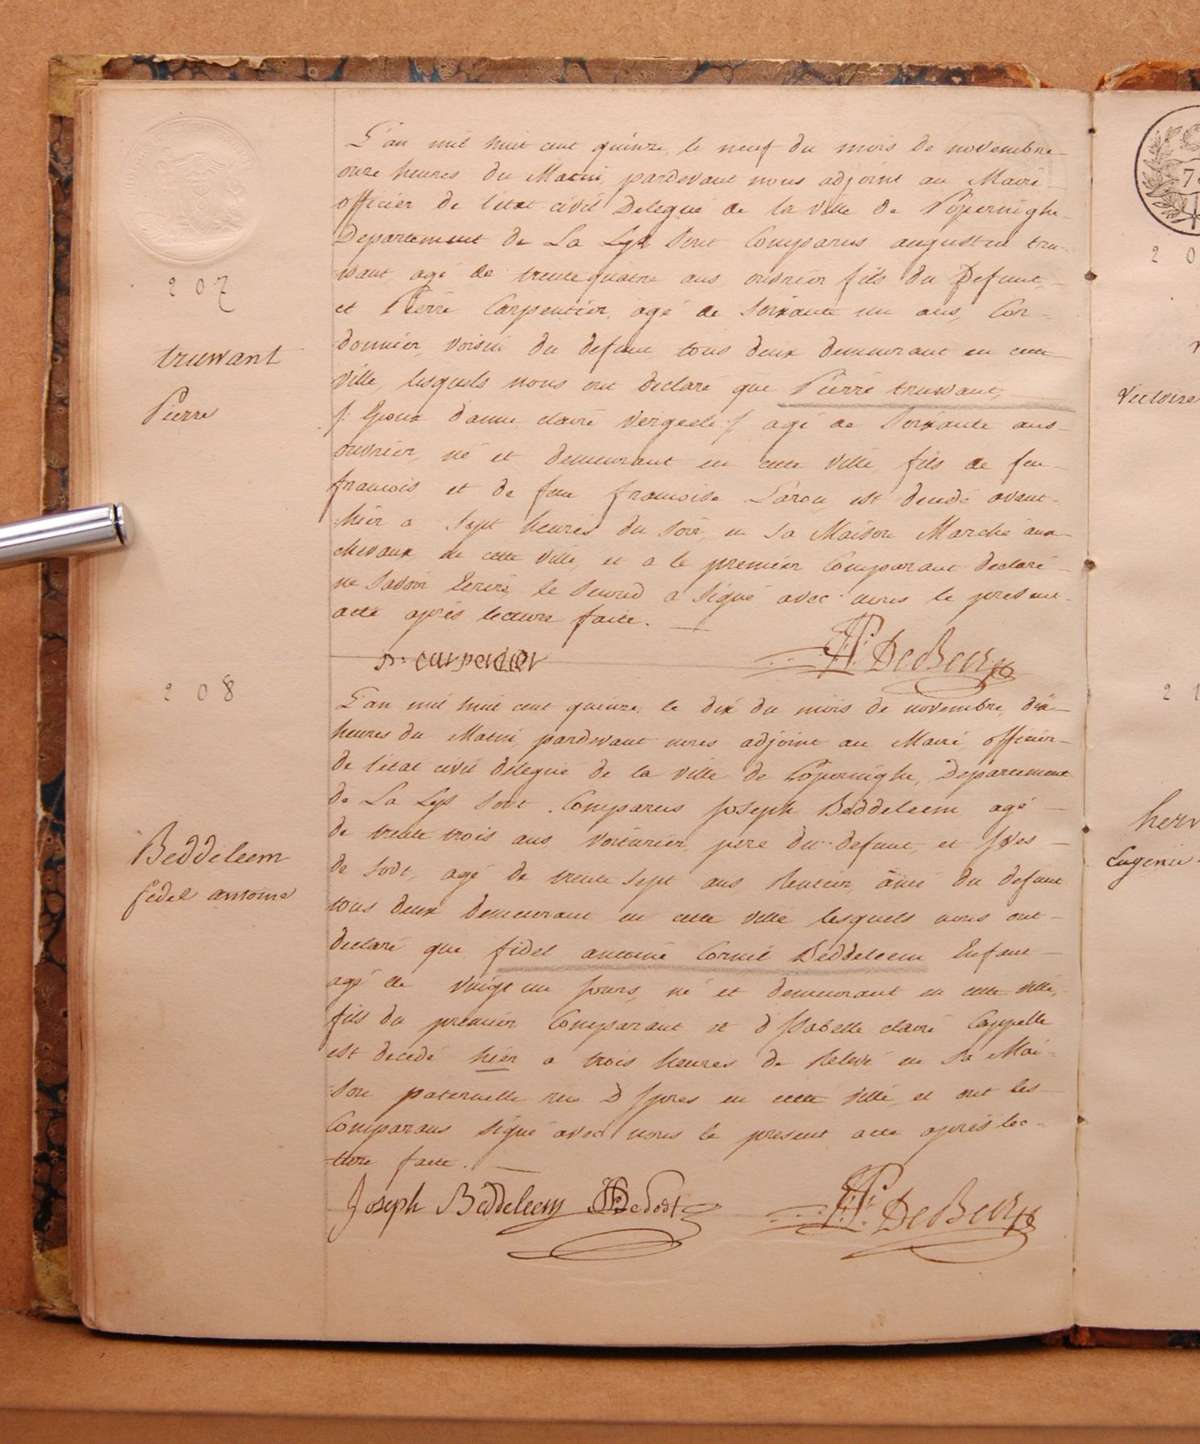 207
truwant
Pierre
L'an mil huit cent quinze, le neuf du mois de novembre
onze heures du Matin, pardevant nous adjoint au Maire
officier de l'etat civil Delegué de la ville de Poperinghe
Departement de La Lys Sont Comparus augustin tru-
want agé de trente quatre ans ouvrier fils du Defunt,
et Pierre Carpentier, agé de Soixante un ans, Cor-
donnier, voisin du defunt tous deux demeurant en cette
ville, lesquels nous ont declaré que Pierre truwant,
/: Epoux d'anne claire :/ agé de Soixante ans
ouvrier, né et demeurant en cette ville, fils de feu
francois et de feue francoise est decedé avant-
hier a Sept heures du soir, en Sa Maison Marché aux
chevaux de cette ville, et a le premier Comparant declaré
ne Savoir Ecrire, le Second a Signé avec nous le present
acte après lecture faite.
DeBeir
208
Beddeleem
fidel antoine
L'an mil huit cent quinze, le dix du mois de novembre, dix
heures du Matin, pardevant nous adjoint au Maire, officier
de l'etat civil delegué de la ville de Poperinghe, Departement
de La Lys Sont Comparus Joseph Beddeleem agé
de trente trois ans voiturier, pere du defunt, et Yves
de Sodt, agé de trente Sept ans Rentier, ami du defunt
tous deux demeurant en cette ville lesquels nous ont
declaré que fidel antoine Cornil Beddeleem Enfant
agé de vingt un Jours, né et demeurant en cette ville,
fils du premier Comparant et d'Isabelle claire Cappelle
est decedé hier a trois heures de Relevé en Sa Mai-
son paternelle rue D'Ypres en cette ville, et ont les
Comparans Signé avec nous le present acte après lec-
ture faite.
Joseph Beddeleem DeSodt DeBeir
Victoire
herw
Eugenie